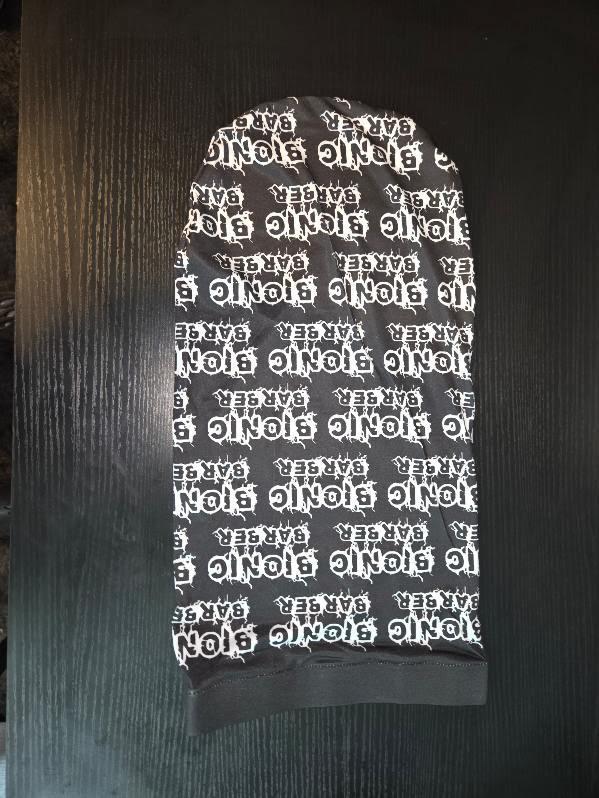 BIONIC BIONIC BION
BARBER BARBER BARBER
BIONIC BIONIC
BARBER BARBER
BIONIC BIONIC BION
BARBER BARBER BARBER
BIONIC BIONIC
BARBER BARBER
BIONIC BIONIC BION
BARBER BARBER BARBER
BIONIC BIONIC
BARBER BARBER
BIONIC BIONIC
BARBER BARBER BARBER
BIONIC BIONIC
BARBER BARBER